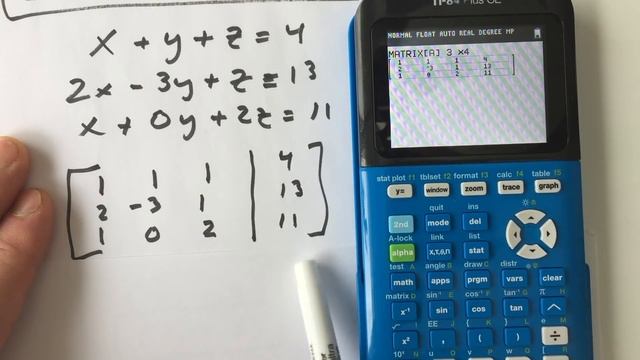 x + y + z = 4
2x - 3y + z = 13
x + 0y + 2z = 11
1 1 1 4
2 -3 1 13
1 0 2 11
TI-84 Plus CE
NORMAL FLOAT AUTO REAL DEGREE MP
MATRIX[A] 3 ×4
1 1 1 4
2 -3 1 13
1 0 2 11
stat plot f1 tblset f2 format f3 calc f4 table f5
y= window zoom trace graph
quit ins
2nd mode del
A-lock link list
alpha X,T,θ,n stat
test A angle B draw C distr
math apps prgm vars clear
matrix D sin⁻¹ E cos⁻¹ F tan⁻¹ G π H
x⁻¹ sin cos tan ^
√ I EE J { K } L e M
x² , ( ) ÷
10ˣ N u O v P w Q